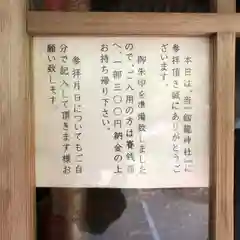 本日は、当「劔龍神社」に
参拝頂き誠にありがとうご
ざいます。
御朱印を準備致しました
ので、ご入用の方は賽銭
へ、一御三〇〇円納金の上
お持ち帰り下さい。
参拝月日についてもご自
分で記入して頂きます様お
願い致します。